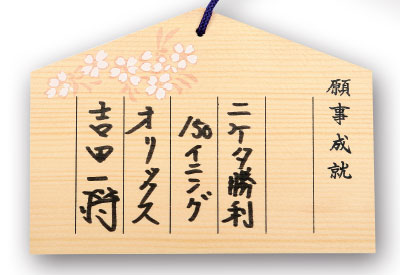 願事成就
二ケタ勝利
150イニング
オリックス
吉田一将